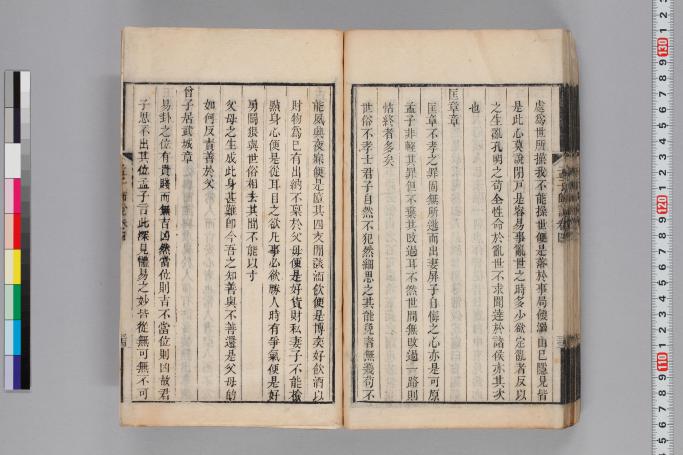 處爲世所操我不能操世便是落於事局傀儡由已隱見皆
是此心莫說閉戸是容易事亂世之時多少欲定亂者反以
之生亂孔明之苟全性命於亂世不求聞達於諸侯亦其次
也
匡章章
匡章不孝之罪固無所逃而出妻屏子自傷之心亦是可原
孟子非輕其罪但不棄其改過耳不然世間無改過一路則
怙終者多矣
世俗不孝士君子自然不犯然細思之其能免者無幾苟不
能夙興夜寐便是惰其四支閒談酒飲便是博奕好飲酒以
財物爲已有出納不稟於父母便是好貨財私妻子不能檢
熟身心便是從耳目之欲凡事必欲勝人時有爭氣便是好
勇鬭狠與世俗相去其間不能以寸
父母之生成此身甚難即今吾之知善與不善還是父母的
如何反責善於父
曾子居武城章
易卦之位有貴賤而無吉凶然當位則吉不當位則凶故君
子思不出其位孟子言此深見體易之妙皆從無可無不可
130
120
110